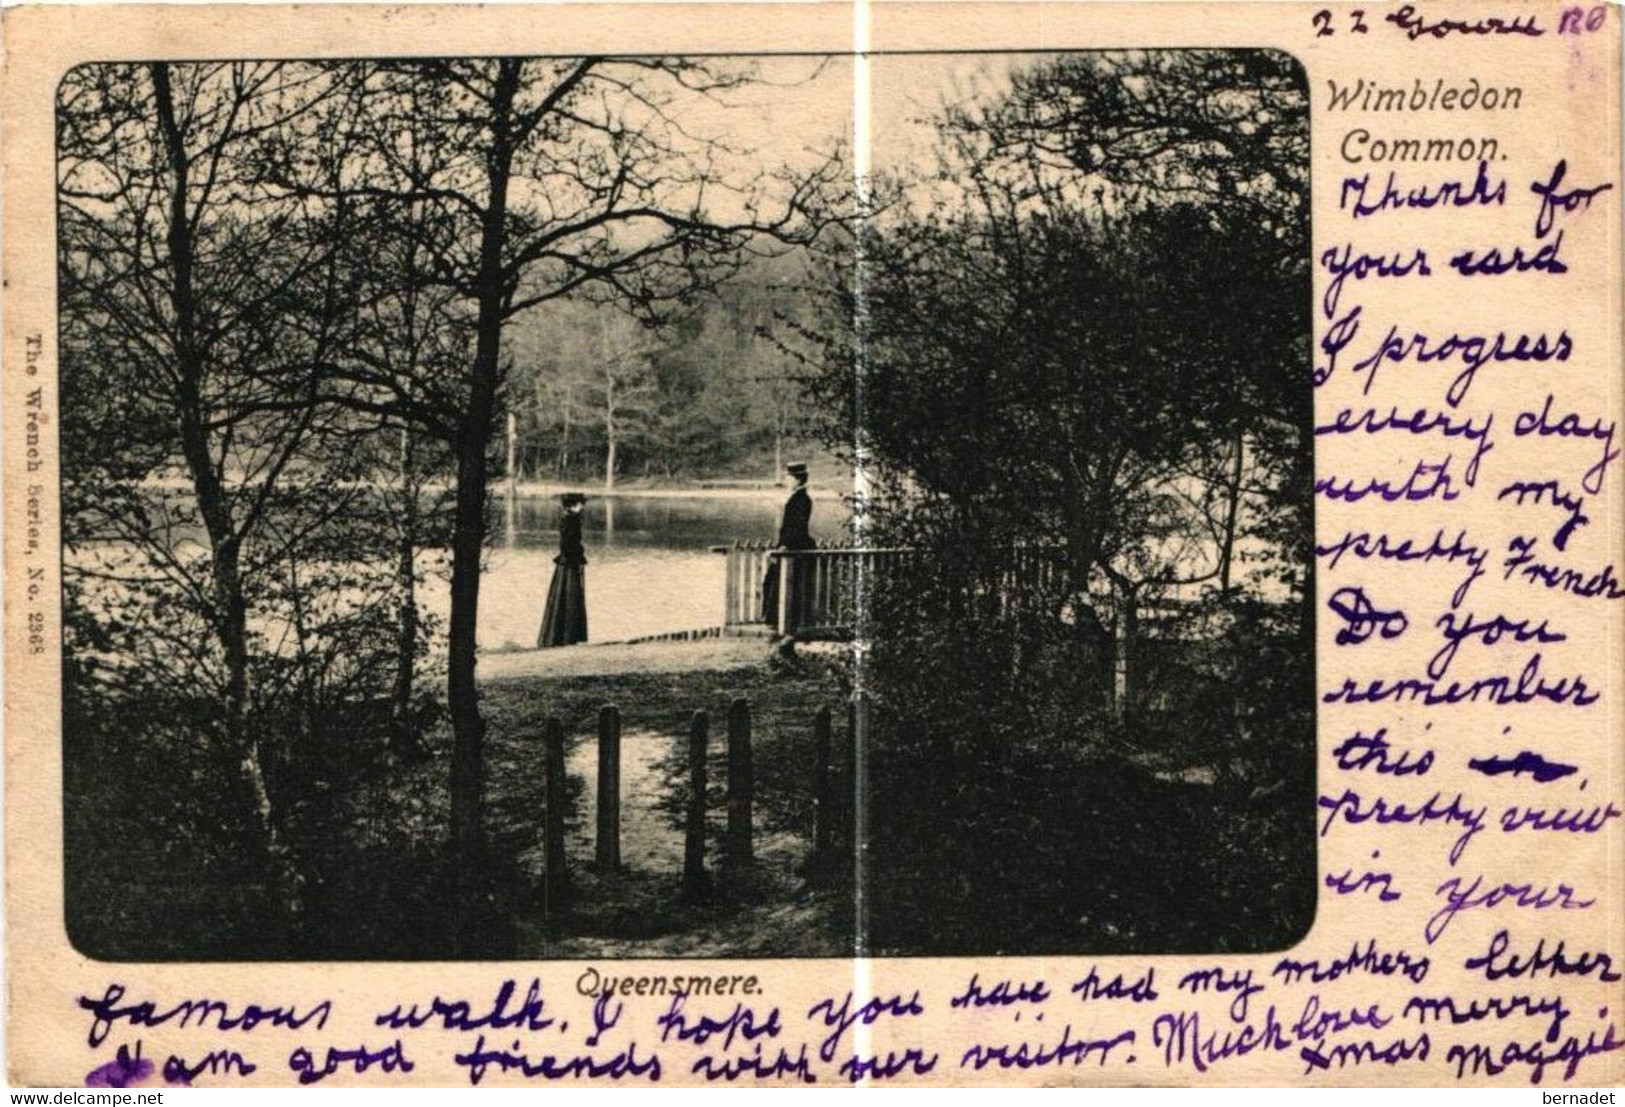 22
Wimbledon
Common.
Thanks for
your card
I progress
every day
with my
pretty French
Do you
remember
this in
pretty view
in your
famous walk. I hope you have had my mothers letter
I am good friends with our visitor. Much love merry
xmas Maggie
Queensmere.
The Wrench Series, No. 2368
delcampe.net
bernadet